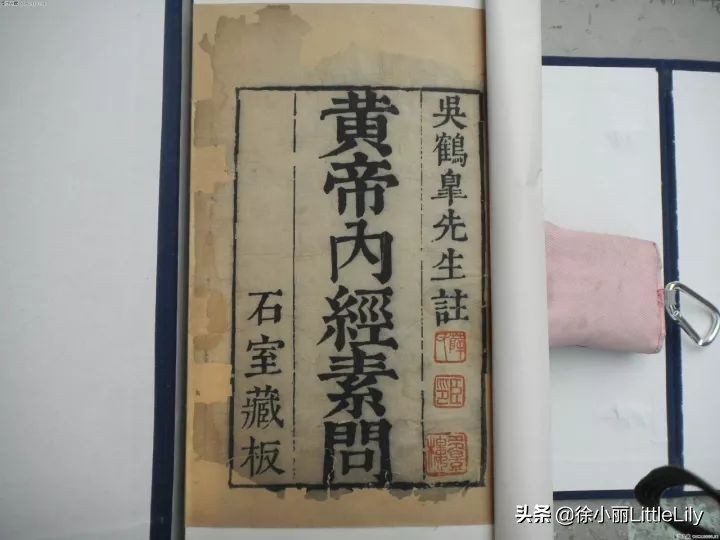 吳鶴臯先生註
黃帝內經素問
石室藏板
头条 @徐小丽LittleLily